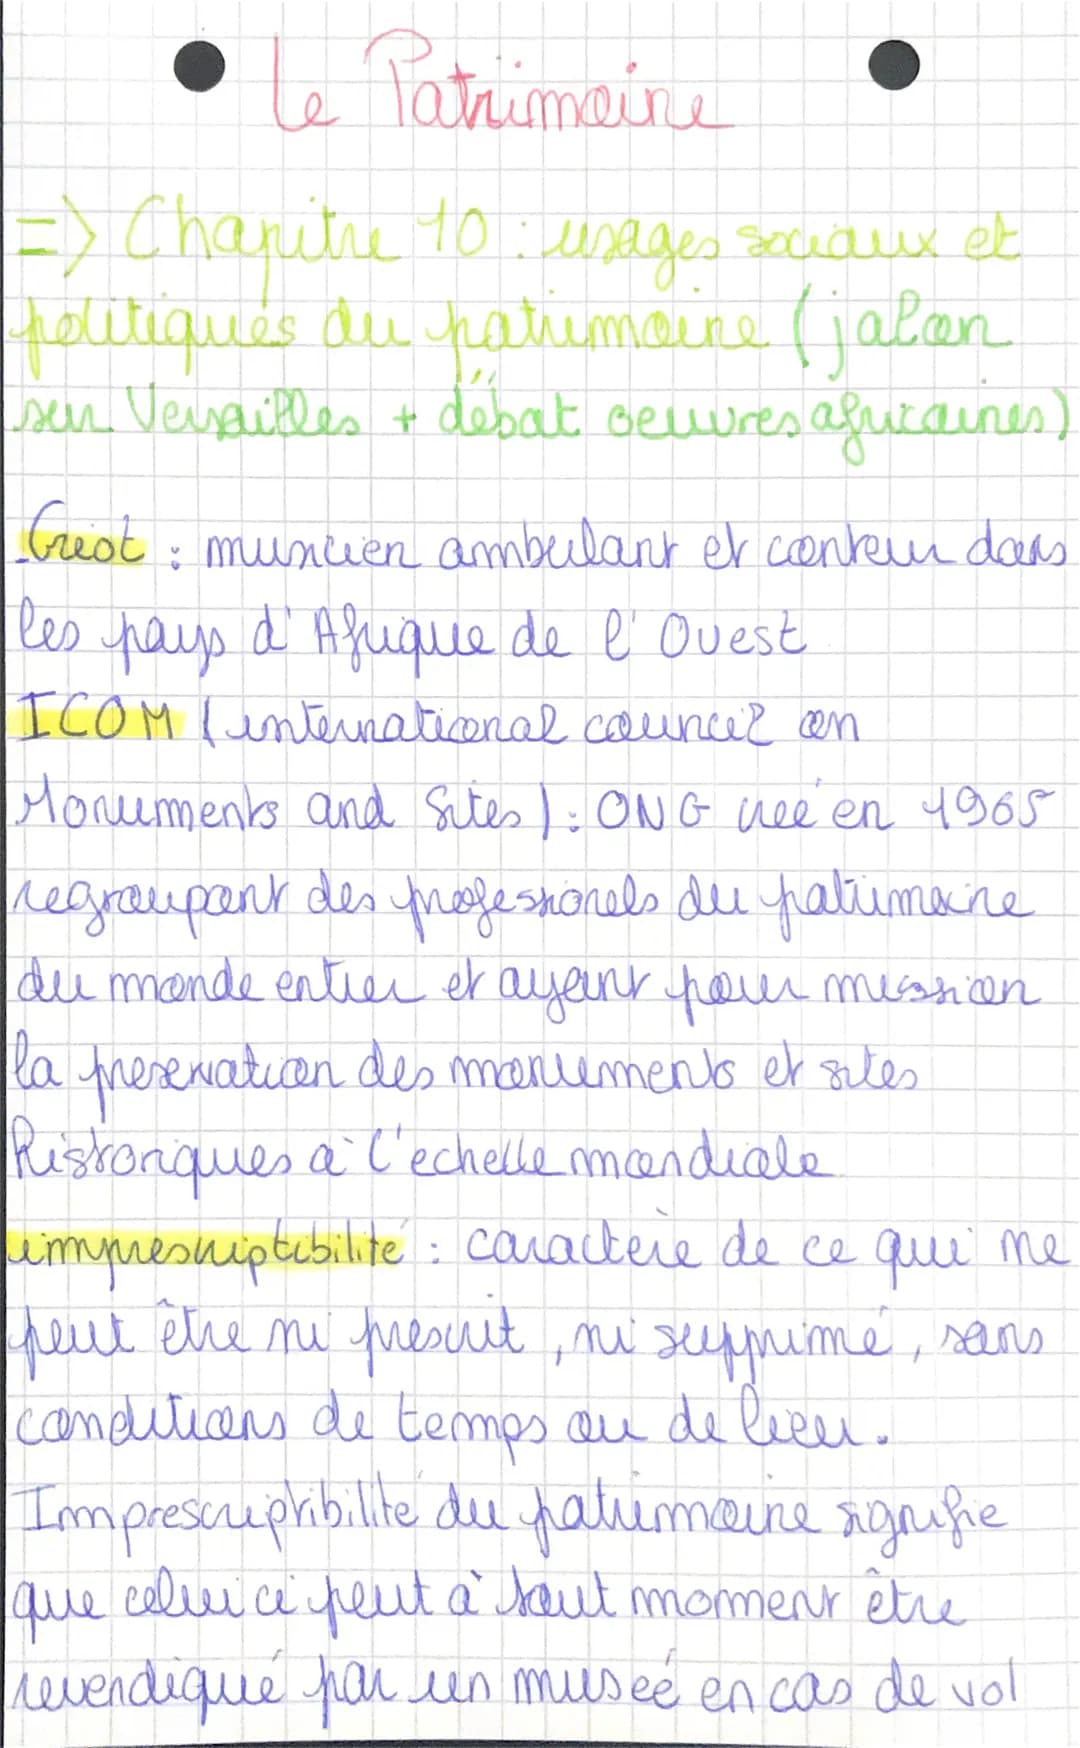 Le Patrimoine
=> Chapitre 10 : usages sociaux et
politiques du patrimoine (jalon
sur Versailles + débat oeuvres africaines)
Griot : musicien ambulant et conteur dans
les pays d'Afrique de l'Ouest
ICOM (international council on
Monuments and Sites) : ONG créé en 1965
regroupant des professionels du patrimoine
du monde entier et ayant pour mission
la préservation des monuments et sites
historiques à l'echelle mondiale
imprescriptibilité : caractère de ce qui ne
peut être ni prescrit, ni supprimé, sans
conditions de temps ou de lieu.
Imprescriptibilité du patrimoine signifie
que celui ci peut à tout moment être
revendiqué par un musée en cas de vol